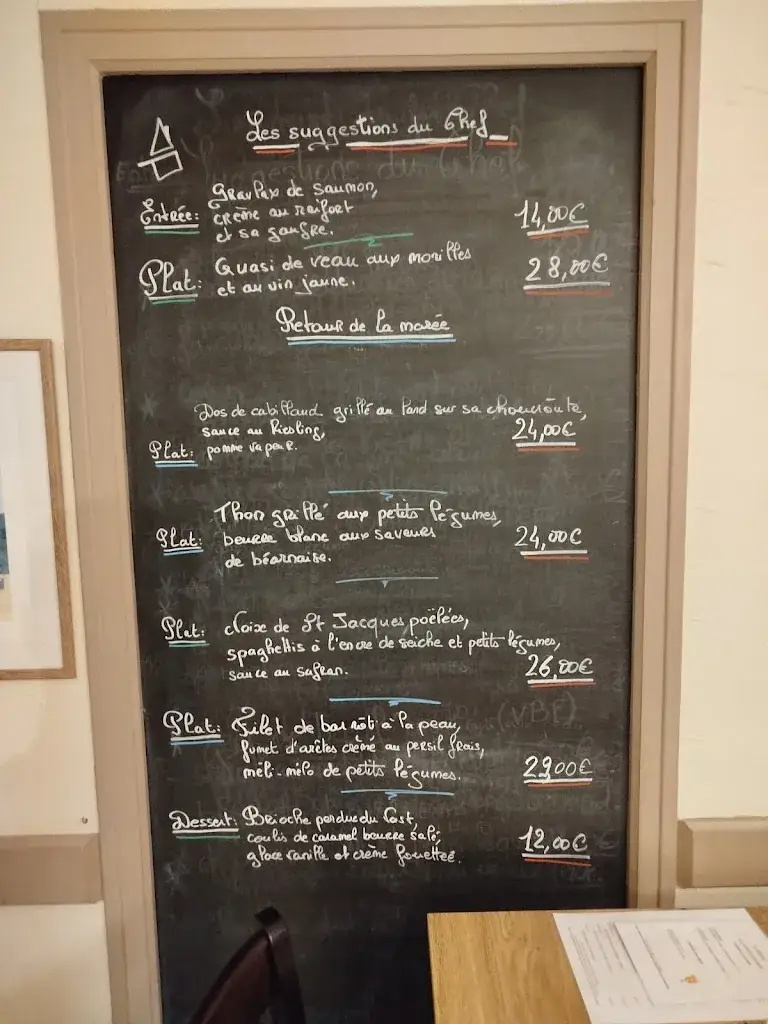 Les suggestions du Chef
Gravlax de saumon,
Entrée: crème au raifort 14,00€
et sa gaufre.
Plat: Quasi de veau aux morilles 28,00€
et au vin jaune.
Retour de la marée
Dos de cabillaud grillé au lard sur sa choucroute,
sauce au Riesling, 24,00€
Plat: pomme vapeur.
Thon grillé aux petits légumes,
Plat: beurre blanc aux saveurs 24,00€
de béarnaise.
Plat: Noix de St Jacques poëlées,
spaghettis à l'encre de seiche et petits légumes,
sauce au safran. 26,00€
Plat: Filet de bar rôti à la peau,
fumet d'arêtes crémé au persil frais,
méli-mélo de petits légumes. 29,00€
Dessert: Brioche perdue du Cost,
coulis de caramel beurre salé, 12,00€
glace vanille et crème fouetteé.
(VBF)